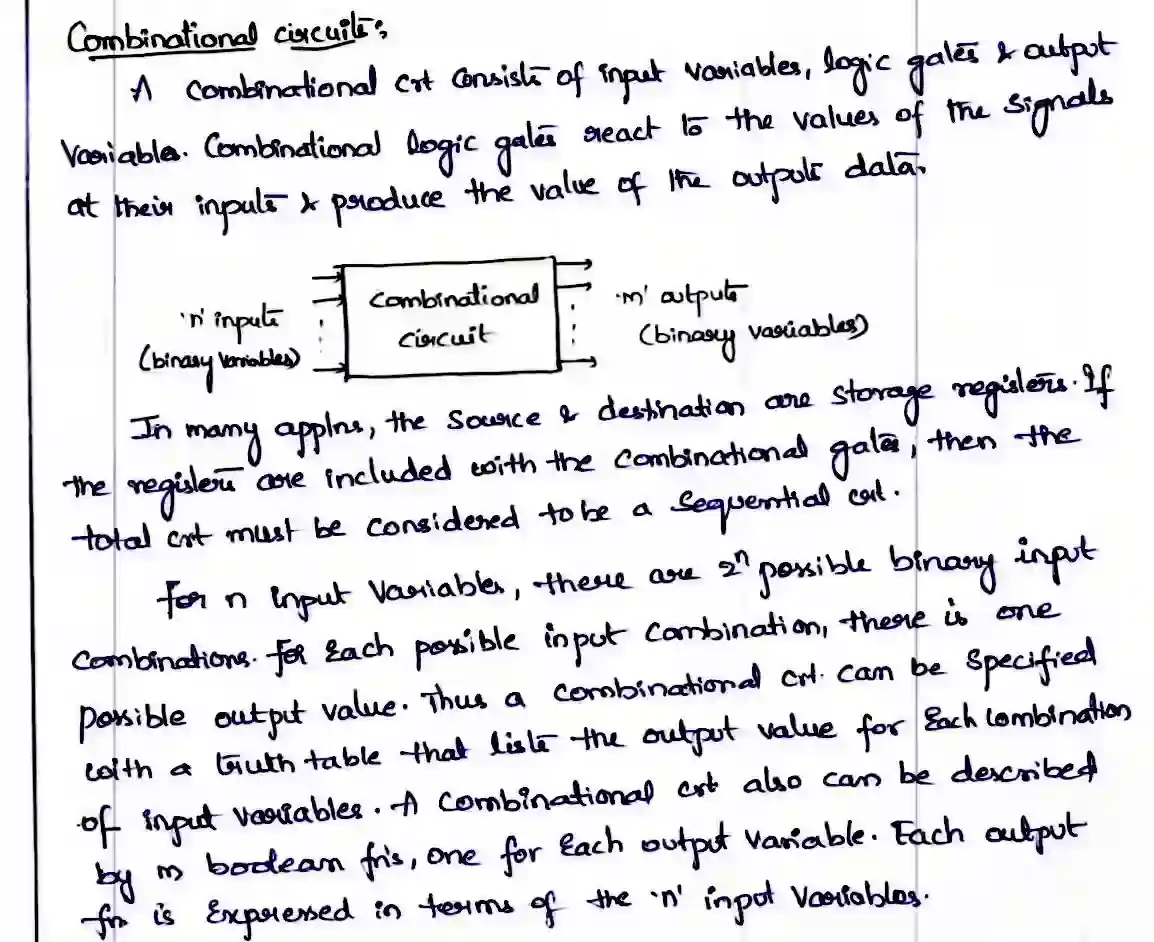 Combinational circuits:
A combinational crt consists of input variables, logic gates & output
variables. Combinational logic gates react to the values of the signals
at their inputs & produce the value of the outputs data.
'n' inputs
(binary variables)
combinational
circuit
'm' outputs
(binary variables)
In many applns, the source & destination are storage registers. If
the registers are included with the combinational gates, then the
total crt must be considered to be a sequential crt.
for n input variables, there are 2ⁿ possible binary input
combinations. for each possible input combination, there is one
possible output value. Thus a combinational crt. can be specified
with a truth table that lists the output value for each combination
of input variables. A combinational crt also can be described
by m boolean fn's, one for each output variable. Each output
fn is expressed in terms of the 'n' input variables.